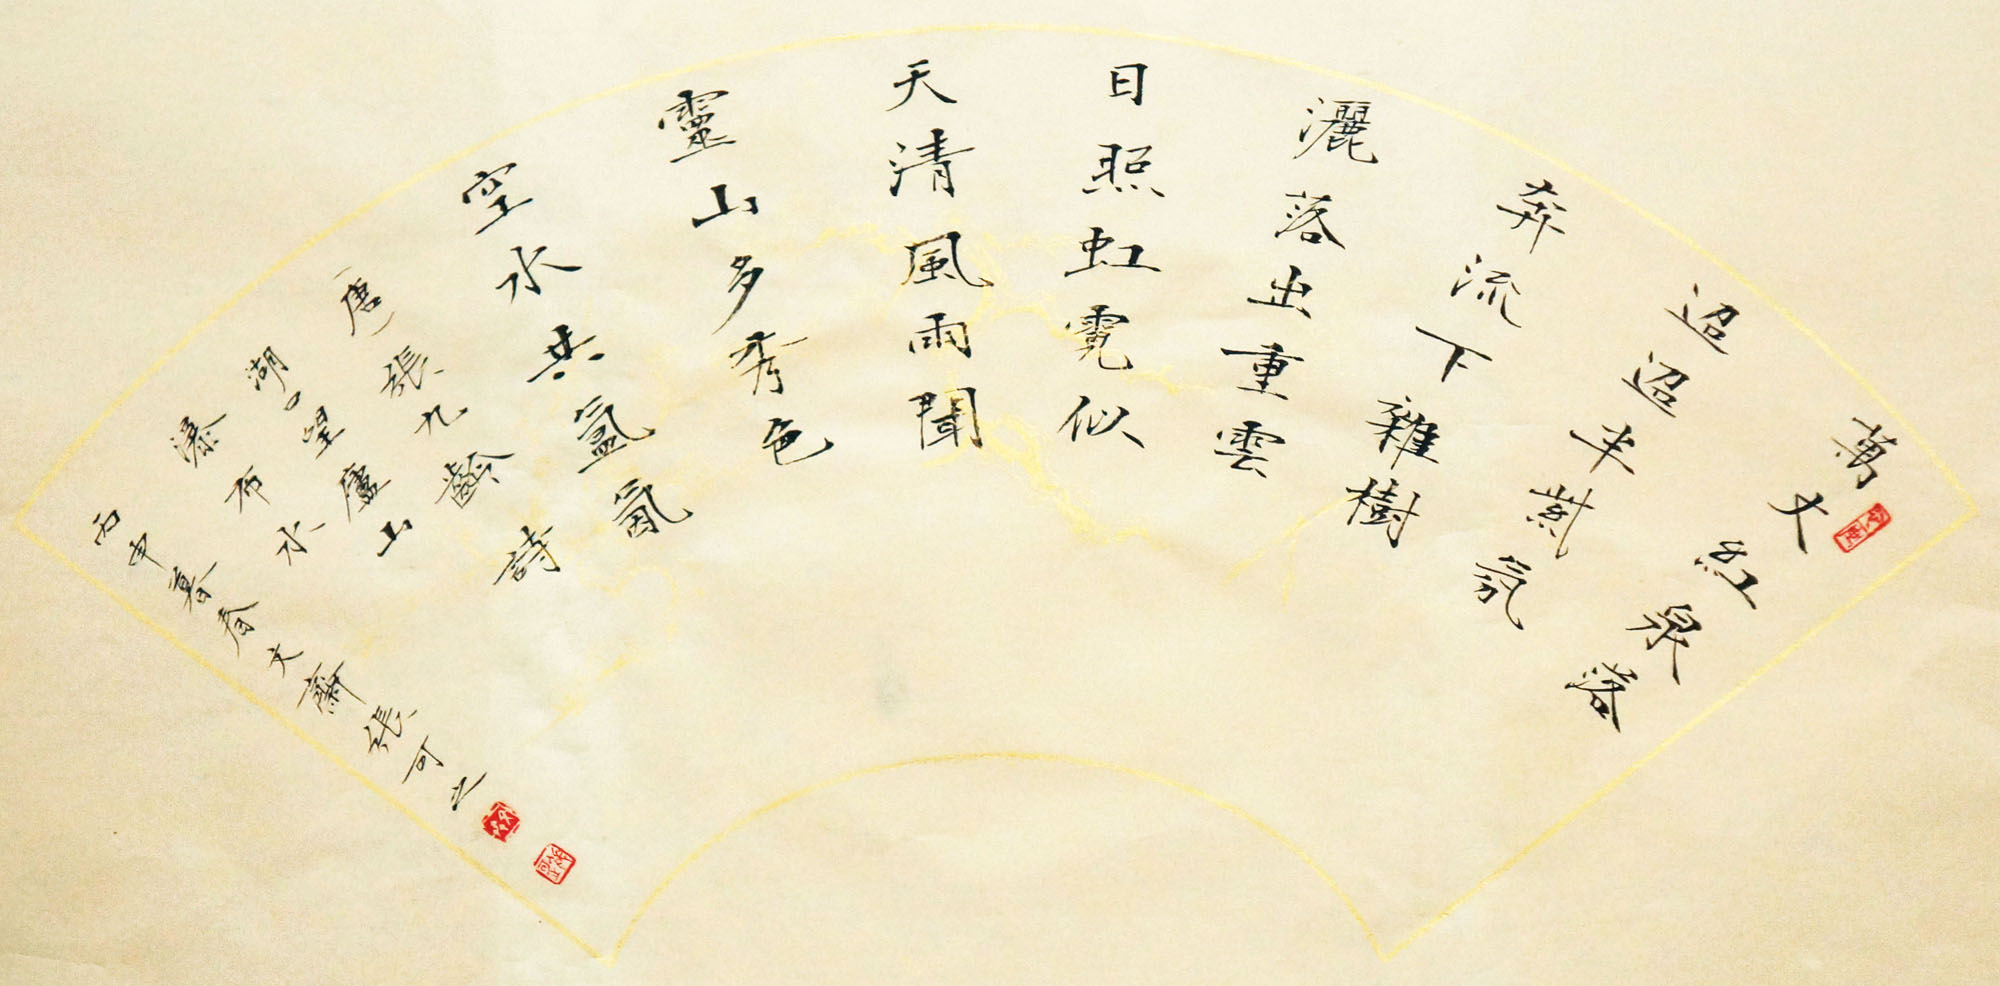 萬丈紅泉落
迢迢半紫氛
奔流下雜樹
灑落出重雲
日照虹霓似
天清風雨聞
靈山多秀色
空水共氳氤
(唐)張九齡詩
湖口望廬山
瀑布水
丙申暮春文齋張可之